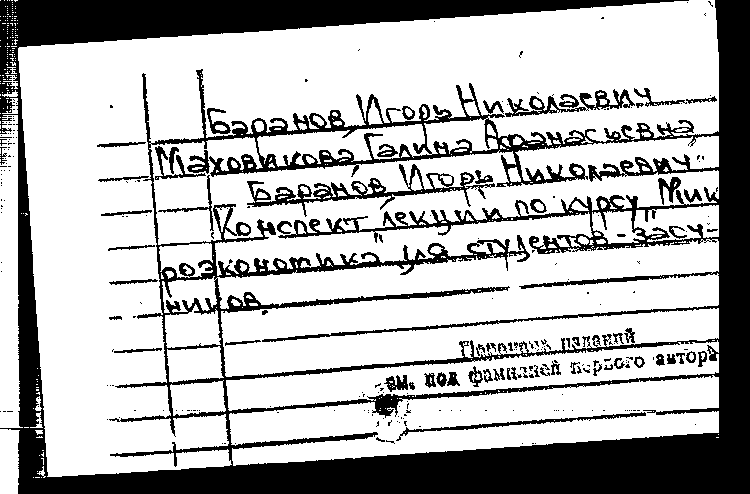 Баранов, Игорь Николаевич
Маховикова, Галина Афанасьевна
Баранов Игорь Николаевич
Конспект лекций по курсу "Мик
роэкономика" для студентов-заоч-
ников.
Перечень изданий
см. под фамилией первого автора